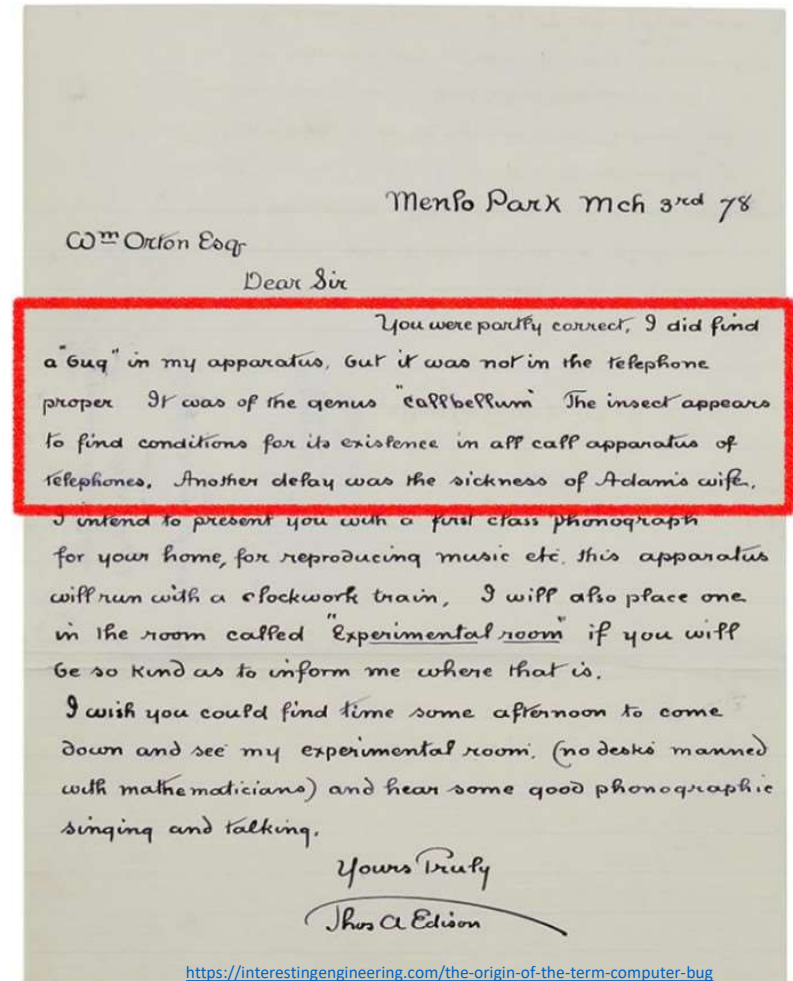 Menlo Park Mch 3rd 78
Wm Orton Esq
Dear Sir
You were partly correct, I did find
a "bug" in my apparatus, but it was not in the telephone
proper It was of the genus "callbellum" The insect appears
to find conditions for its existence in all call apparatus of
telephones. Another delay was the sickness of Adam's wife.
I intend to present you with a first class phonograph
for your home, for reproducing music etc. this apparatus
will run with a clockwork train, I will also place one
in the room called "Experimental room" if you will
be so kind as to inform me where that is.
I wish you could find time some afternoon to come
down and see my experimental room, (no desks manned
with mathematicians) and hear some good phonographic
singing and talking.
Yours Truly
Thos A Edison
https://interestingengineering.com/the-origin-of-the-term-computer-bug